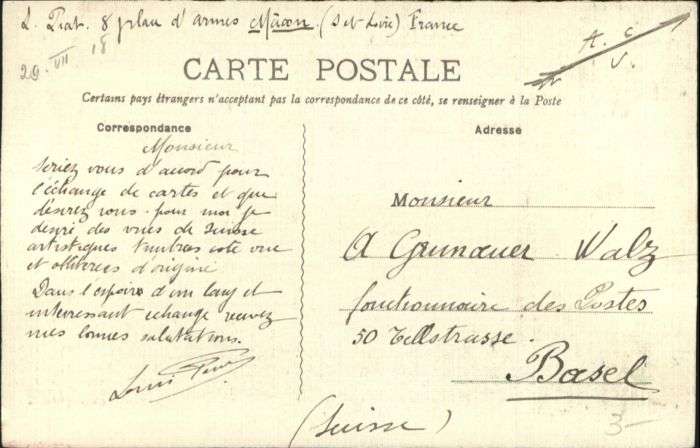 L. Prat. 8 place d'armes Mâcon. (S et Loire) France
29 VII 18
A. C. V.
CARTE POSTALE
Certains pays étrangers n'acceptant pas la correspondance de ce côté, se renseigner à la Poste
Correspondance
Monsieur
Seriez vous d'accord pour
l'échange de cartes et que
désirez vous. pour moi je
désire des vues de Suisse
artistiques timbrées coté vue
et oblitérées d'origine
Dans l'espoire d'un long et
interessant echange recevez
mes bonnes salutations.
Louis
Adresse
Monsieur
A Grunauer Walz
fonctionnaire des Postes
50 Tellstrasse.
Basel
(Suisse)
3-